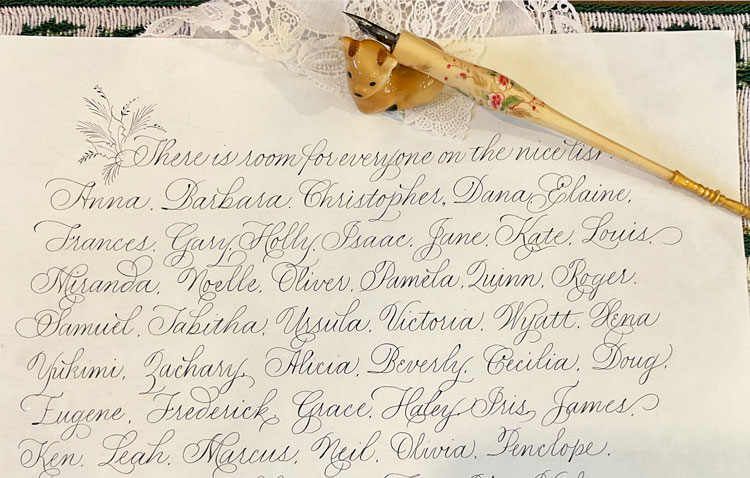 There is room for everyone on the nice list.
Anna, Barbara, Christopher, Dana, Elaine,
Frances, Gary, Holly, Isaac, Jane, Kate, Louis,
Miranda, Noelle, Oliver, Pamela, Quinn, Roger,
Samuel, Tabitha, Ursula, Victoria, Wyatt, Xena
Yukimi, Zachary, Alicia, Beverly, Cecilia, Doug,
Eugene, Frederick, Grace, Haley, Iris, James,
Ken, Leah, Marcus, Neil, Olivia, Penelope,